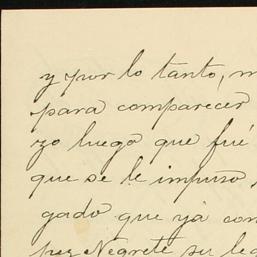 y por lo tanto,
para comparecer
zo luego que fué
que se le impuso
gado que ya con
pez Negrete su